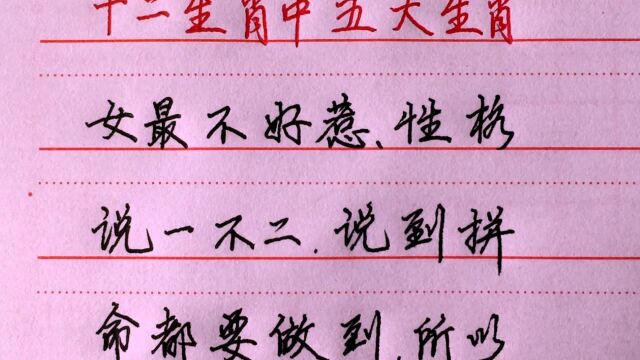 十二生肖中五大生肖
女最不好惹、性格
说一不二、说到拼
命都要做到、所以